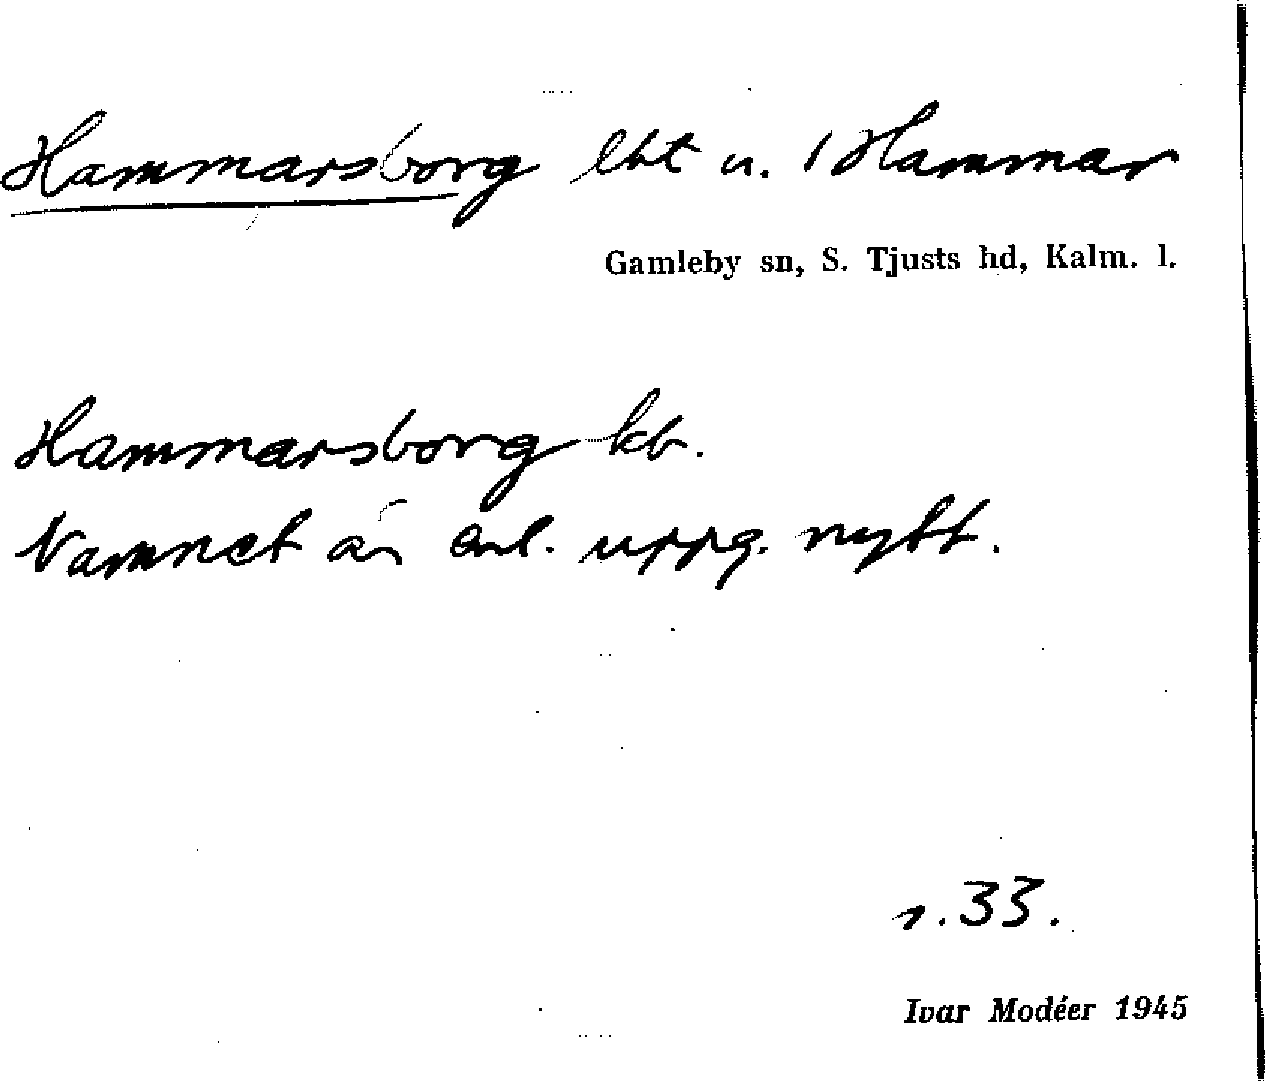 Hammarsborg lht u. 1 Hammar
Gamleby sn, S. Tjusts hd, Kalm. l.
Hammarsborg kb.
Namnet är enl. uppg. nytt.
s. 33.
Ivar Modéer 1945